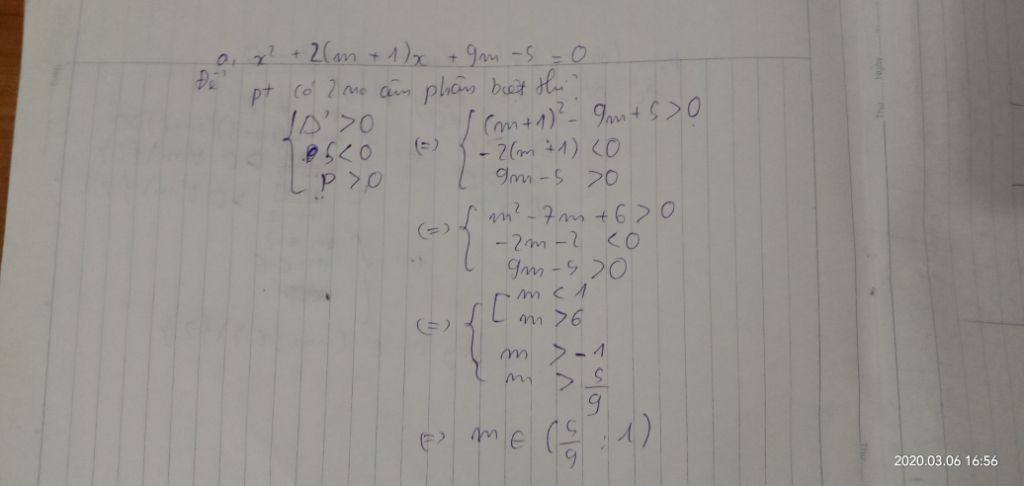 a, x² + 2(m + 1)x + 9m - 5 = 0
Để pt có 2 no âm phân biệt thì:
{ Δ' > 0 (=) { (m+1)² - 9m + 5 > 0
S < 0 - 2(m + 1) < 0
P > 0 9m - 5 > 0
(=) { m² - 7m + 6 > 0
-2m - 2 < 0
9m - 5 > 0
(=) { [ m < 1
m > 6
m > -1
m > 5/9
(=) m ∈ (5/9 ; 1)
2020.03.06 16:56